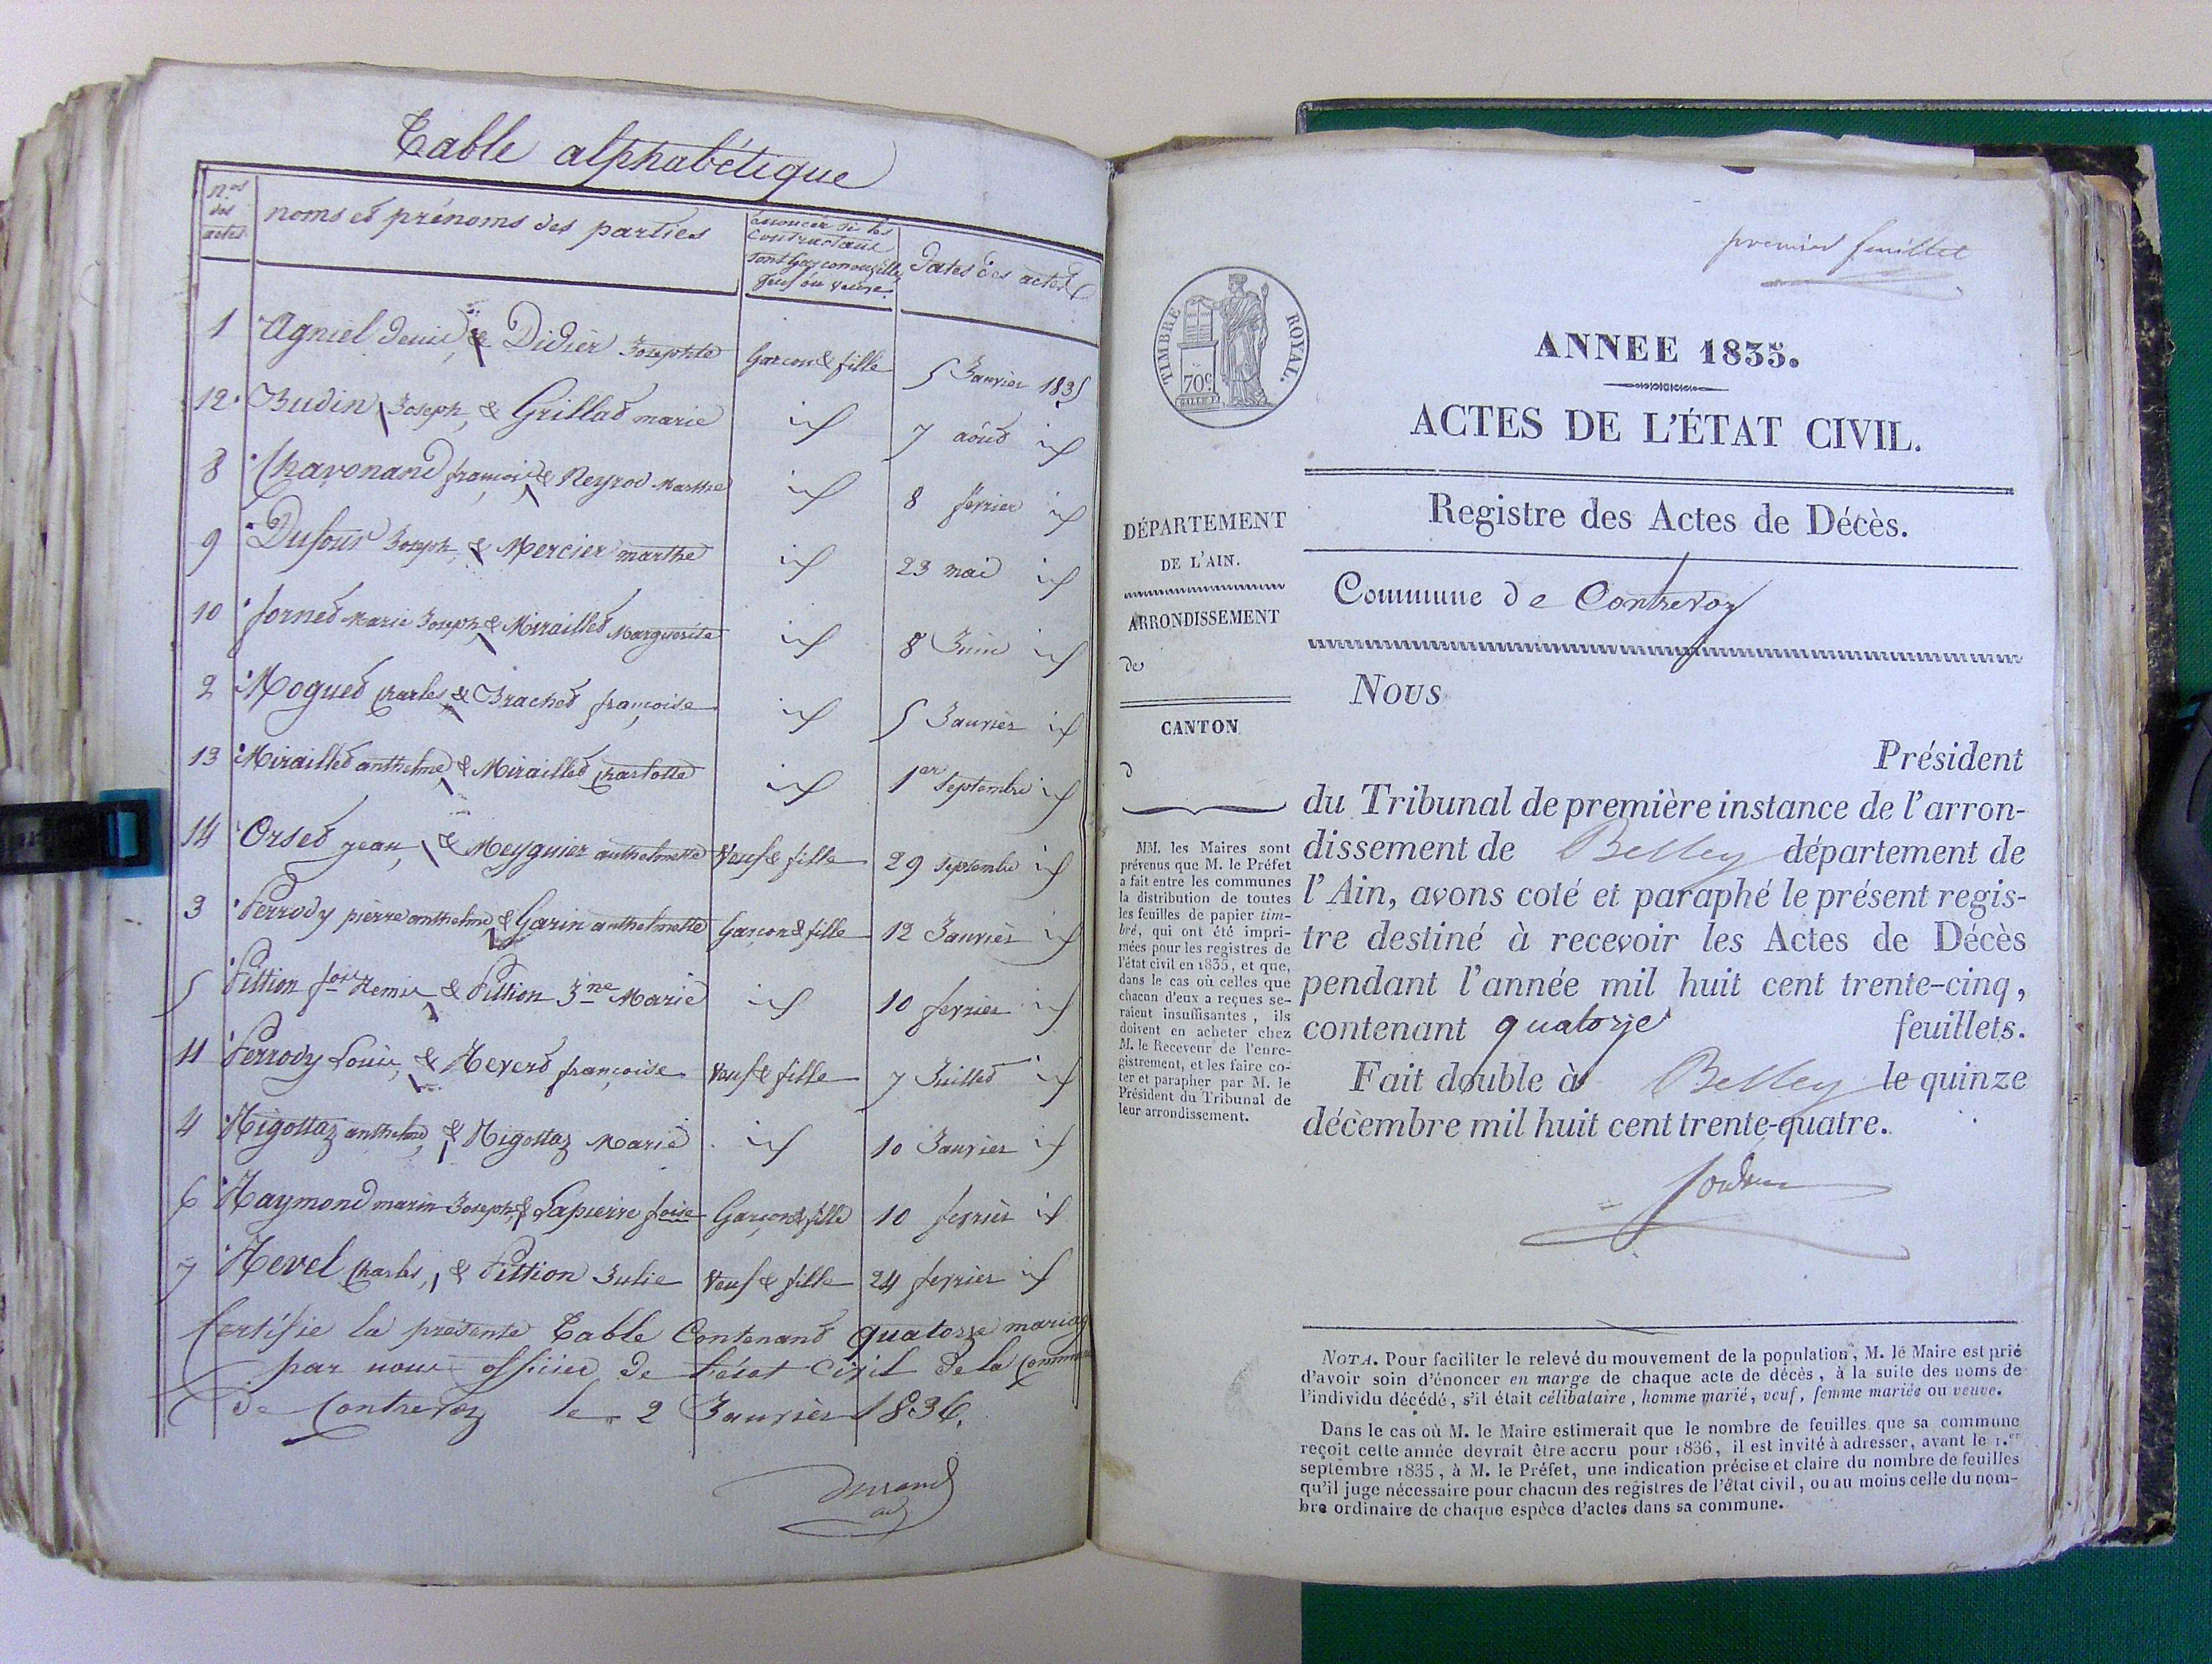 Table alphabétique
nos des actes
noms et prénoms des parties
énoncer si les contractans sont garçon ou fille veuf ou veuve
dates des actes
1 Agniel Denis & Didier Josephte Garcon & fille 5 Janvier 1835
12 Budin Joseph, & Grillet marie id 7 aôut id
8 Chavonand françois & Reyrod Marthe id 8 février id
9 Dufour Joseph & Mercier marthe id 23 mai id
10 fornet Marie Joseph & Miraillet Marguerite id 8 Juin id
2 Moguet Charles & Brachet françoise id 5 Janvier id
13 Miraillet anthelme & Miraillet Charlotte id 1er Septembre id
14 Orset jean, & Meyguier anthelmette Veuf & fille 29 septembre id
3 Perrody pierre anthelme & Garin anthelmette Garcon & fille 12 Janvier id
5 Pittion fois Remis & Pittion Jne Marie id 10 fevrier id
11 Perrody Louis, & Revert françoise Veuf & fille 7 Juillet id
4 Rigottaz anthelme & Rigottaz Marie id 10 Janvier id
6 Raymond marin Joseph & Lapierre foise Garçon & fille 10 fevrier id
7 Revel Charles, & Pittion Julie Veuf & fille 24 fevrier id
Certifie la presente Table Contenant quatorze mariag
par nous officier de l'état civil de la Commune
de Contrevoz le 2 Janvier 1836.
Durand
adj
premier feuillet
TIMBRE ROYAL.
70c
ANNEE 1835.
ACTES DE L'ÉTAT CIVIL.
Registre des Actes de Décès.
Commune de Contrevoz
DÉPARTEMENT
DE L'AIN.
ARRONDISSEMENT
de
CANTON
d
MM. les Maires sont
prévenus que M. le Préfet
a fait entre les communes
la distribution de toutes
les feuilles de papier tim-
bré, qui ont été impri-
mées pour les registres de
l'état civil en 1835, et que,
dans le cas où celles que
chacun d'eux a reçues se-
raient insuffisantes, ils
doivent en acheter chez
M. le Receveur de l'enre-
gistrement, et les faire co-
ter et parapher par M. le
Président du Tribunal de
leur arrondissement.
Nous
Président
du Tribunal de première instance de l'arron-
dissement de Belley département de
l'Ain, avons coté et paraphé le présent regis-
tre destiné à recevoir les Actes de Décès
pendant l'année mil huit cent trente-cinq,
contenant quatorze feuillets.
Fait double à Belley le quinze
décembre mil huit cent trente-quatre.
NOTA. Pour faciliter le relevé du mouvement de la population, M. le Maire est prié
d'avoir soin d'énoncer en marge de chaque acte de décès, à la suite des noms de
l'individu décédé, s'il était célibataire, homme marié, veuf, femme mariée ou veuve.
Dans le cas où M. le Maire estimerait que le nombre de feuilles que sa commune
reçoit cette année devrait être accru pour 1836, il est invité à adresser, avant le 1.er
septembre 1835, à M. le Préfet, une indication précise et claire du nombre de feuilles
qu'il juge nécessaire pour chacun des registres de l'état civil, ou au moins celle du nom-
bre ordinaire de chaque espèce d'actes dans sa commune.